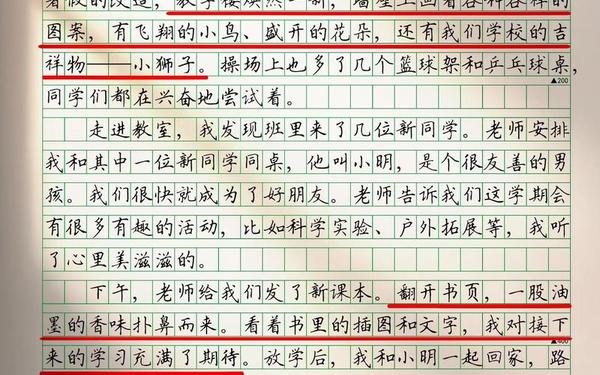 暑假的改造，教学楼焕然一新，墙壁上画着各种各样的
图案，有飞翔的小鸟、盛开的花朵，还有我们学校的吉
祥物——小狮子。操场上也多了几个篮球架和乒乓球桌，
▲200
同学们都在兴奋地尝试着。
走进教室，我发现班里来了几位新同学。老师安排
我和其中一位新同学同桌，他叫小明，是个很友善的男
孩。我们很快就成为了好朋友。老师告诉我们这学期会
有很多有趣的活动，比如科学实验、户外拓展等，我听
了心里美滋滋的。
下午，老师给我们发了新课本。翻开书页，一股油
墨的香味扑鼻而来。看着书里的插图和文字，我对接下
▲400
来的学习充满了期待。放学后，我和小明一起回家，路